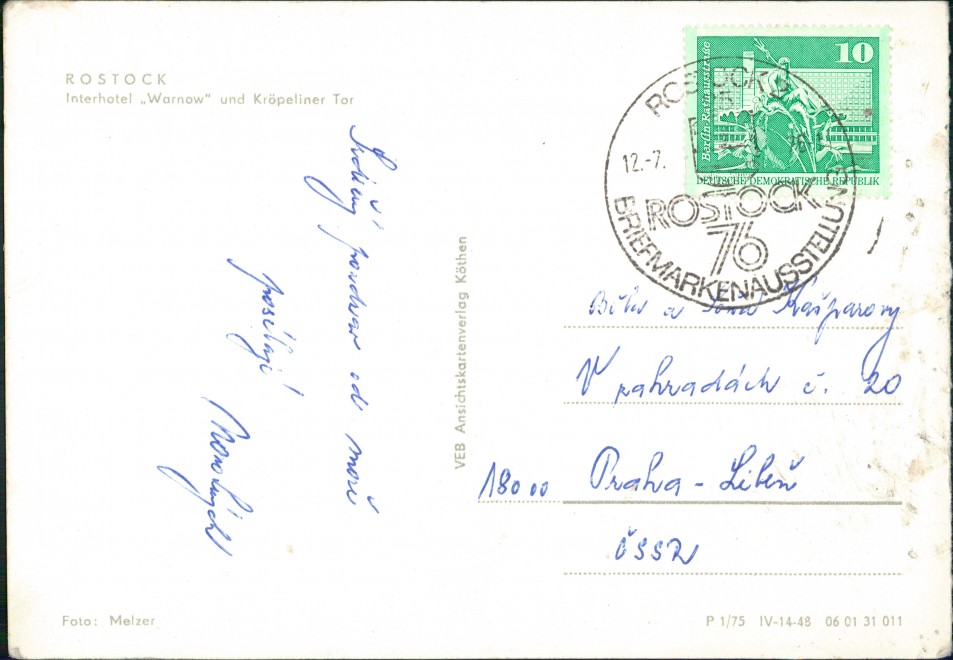 ROSTOCK
Interhotel „Warnow“ und Kröpeliner Tor
Srdečný pozdrav od moře
posílají
VEB Ansichtskartenverlag Köthen
10
Berlin Rathausstraße
DEUTSCHE DEMOKRATISCHE REPUBLIK
ROSTOCK
12.-7.
ROSTOCK
76
BRIEFMARKENAUSSTELLUNG
a Kašparovy
V zahradách č. 20
18000 Praha - Libeň
ČSSR
Foto: Melzer
P 1/75 IV-14-48 06 01 31 011